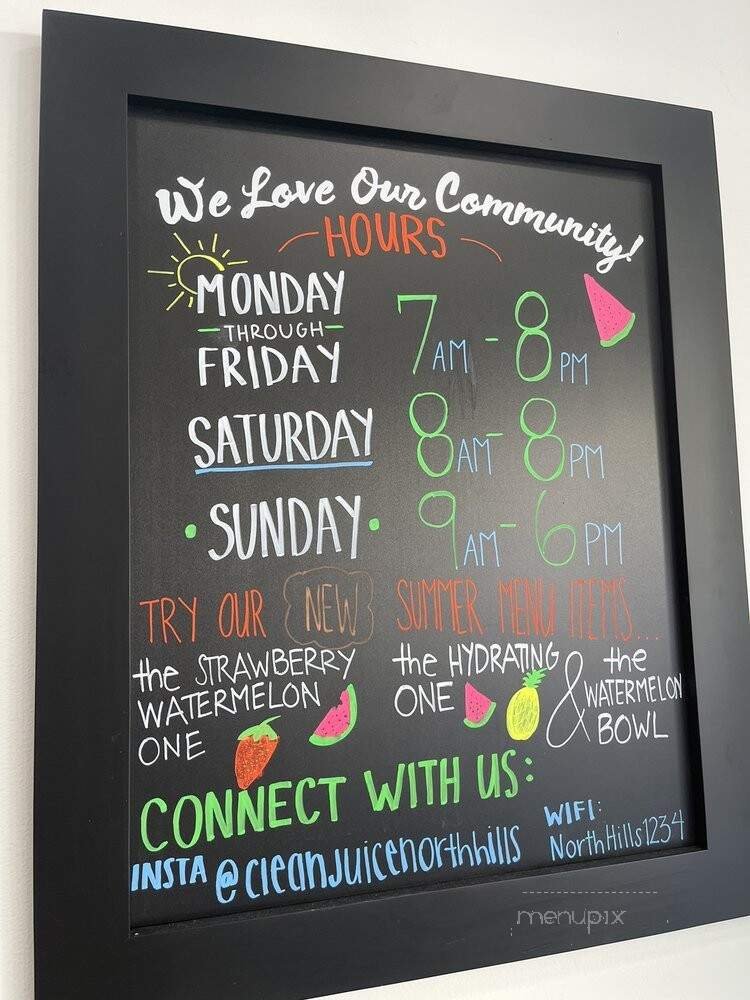 We Love Our Community!
HOURS
MONDAY
THROUGH
FRIDAY
7AM - 8PM
SATURDAY
8AM - 8PM
SUNDAY
9AM - 6PM
TRY OUR NEW SUMMER MENU ITEMS...
the STRAWBERRY
WATERMELON
ONE
the HYDRATING
ONE
& the
WATERMELON
BOWL
CONNECT WITH US:
INSTA @cleanjuicenorthhills
WIFI:
NorthHills1234
menupix